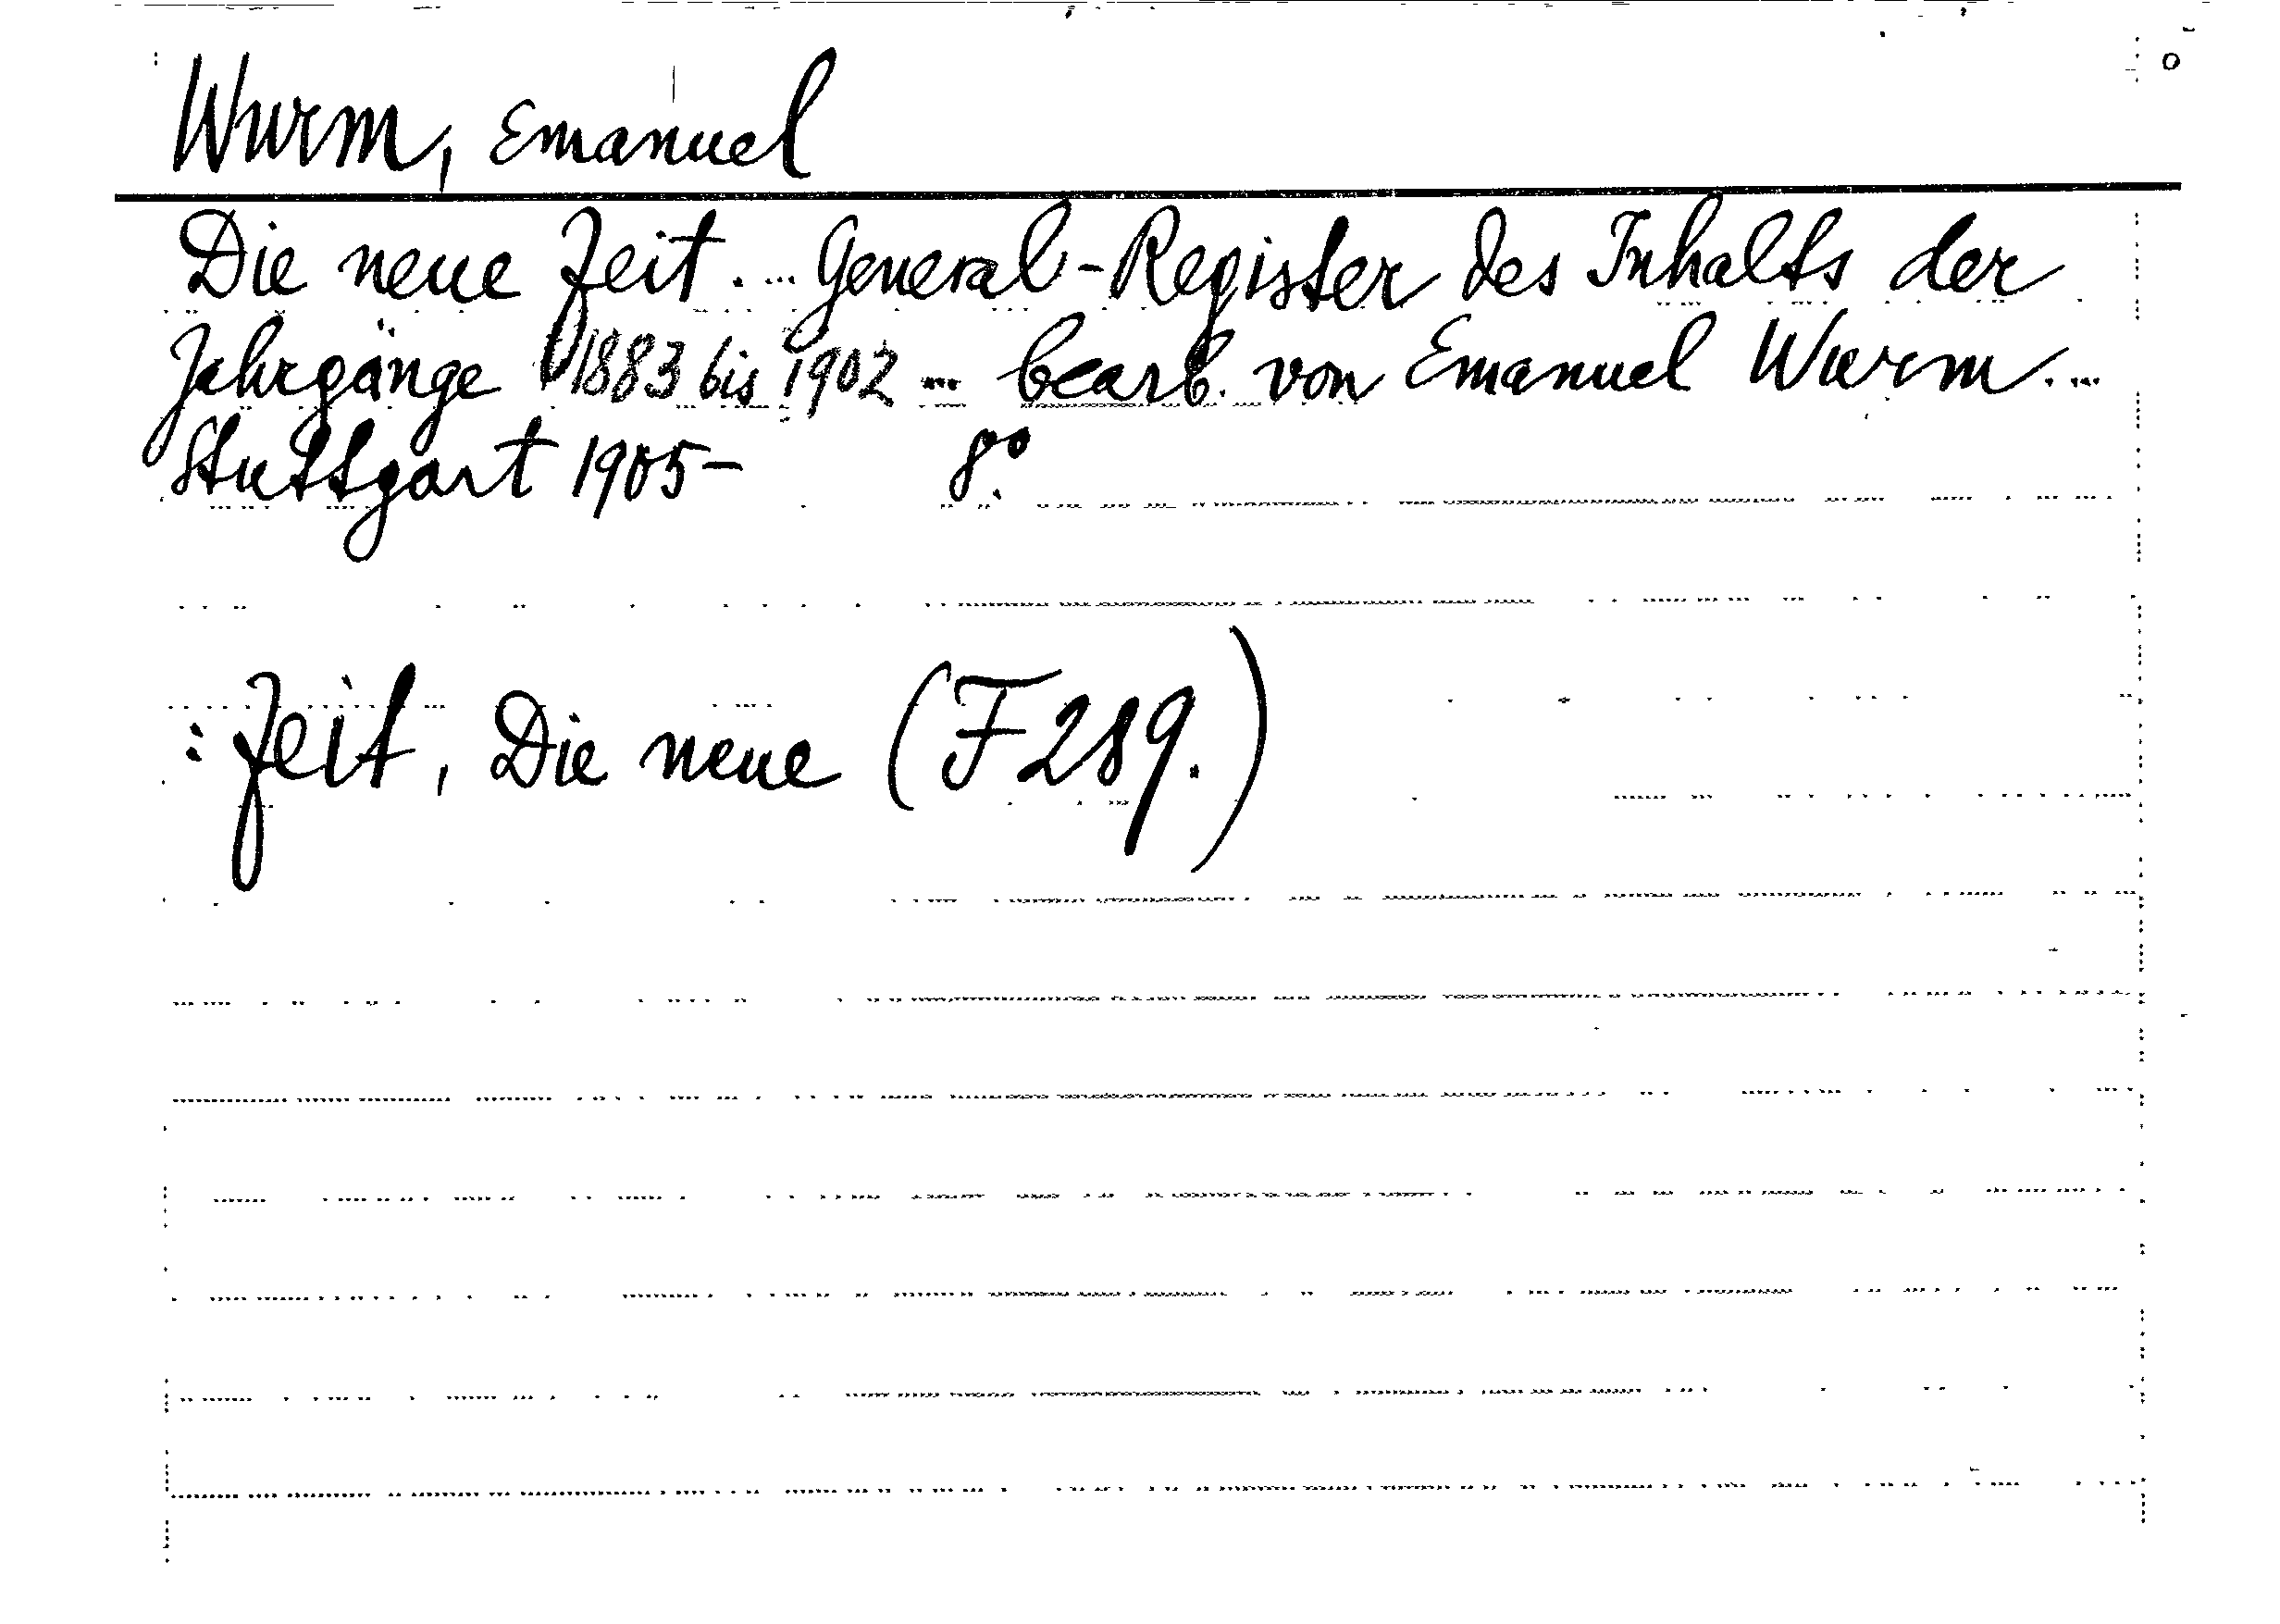 Wurm, Emanuel
Die neue Zeit. ... General-Register des Inhalts der
Jahrgänge 1883 bis 1902 ... bearb. von Emanuel Wurm. ...
Stuttgart 1905- 8°.
: Zeit, Die neue (F 289.)